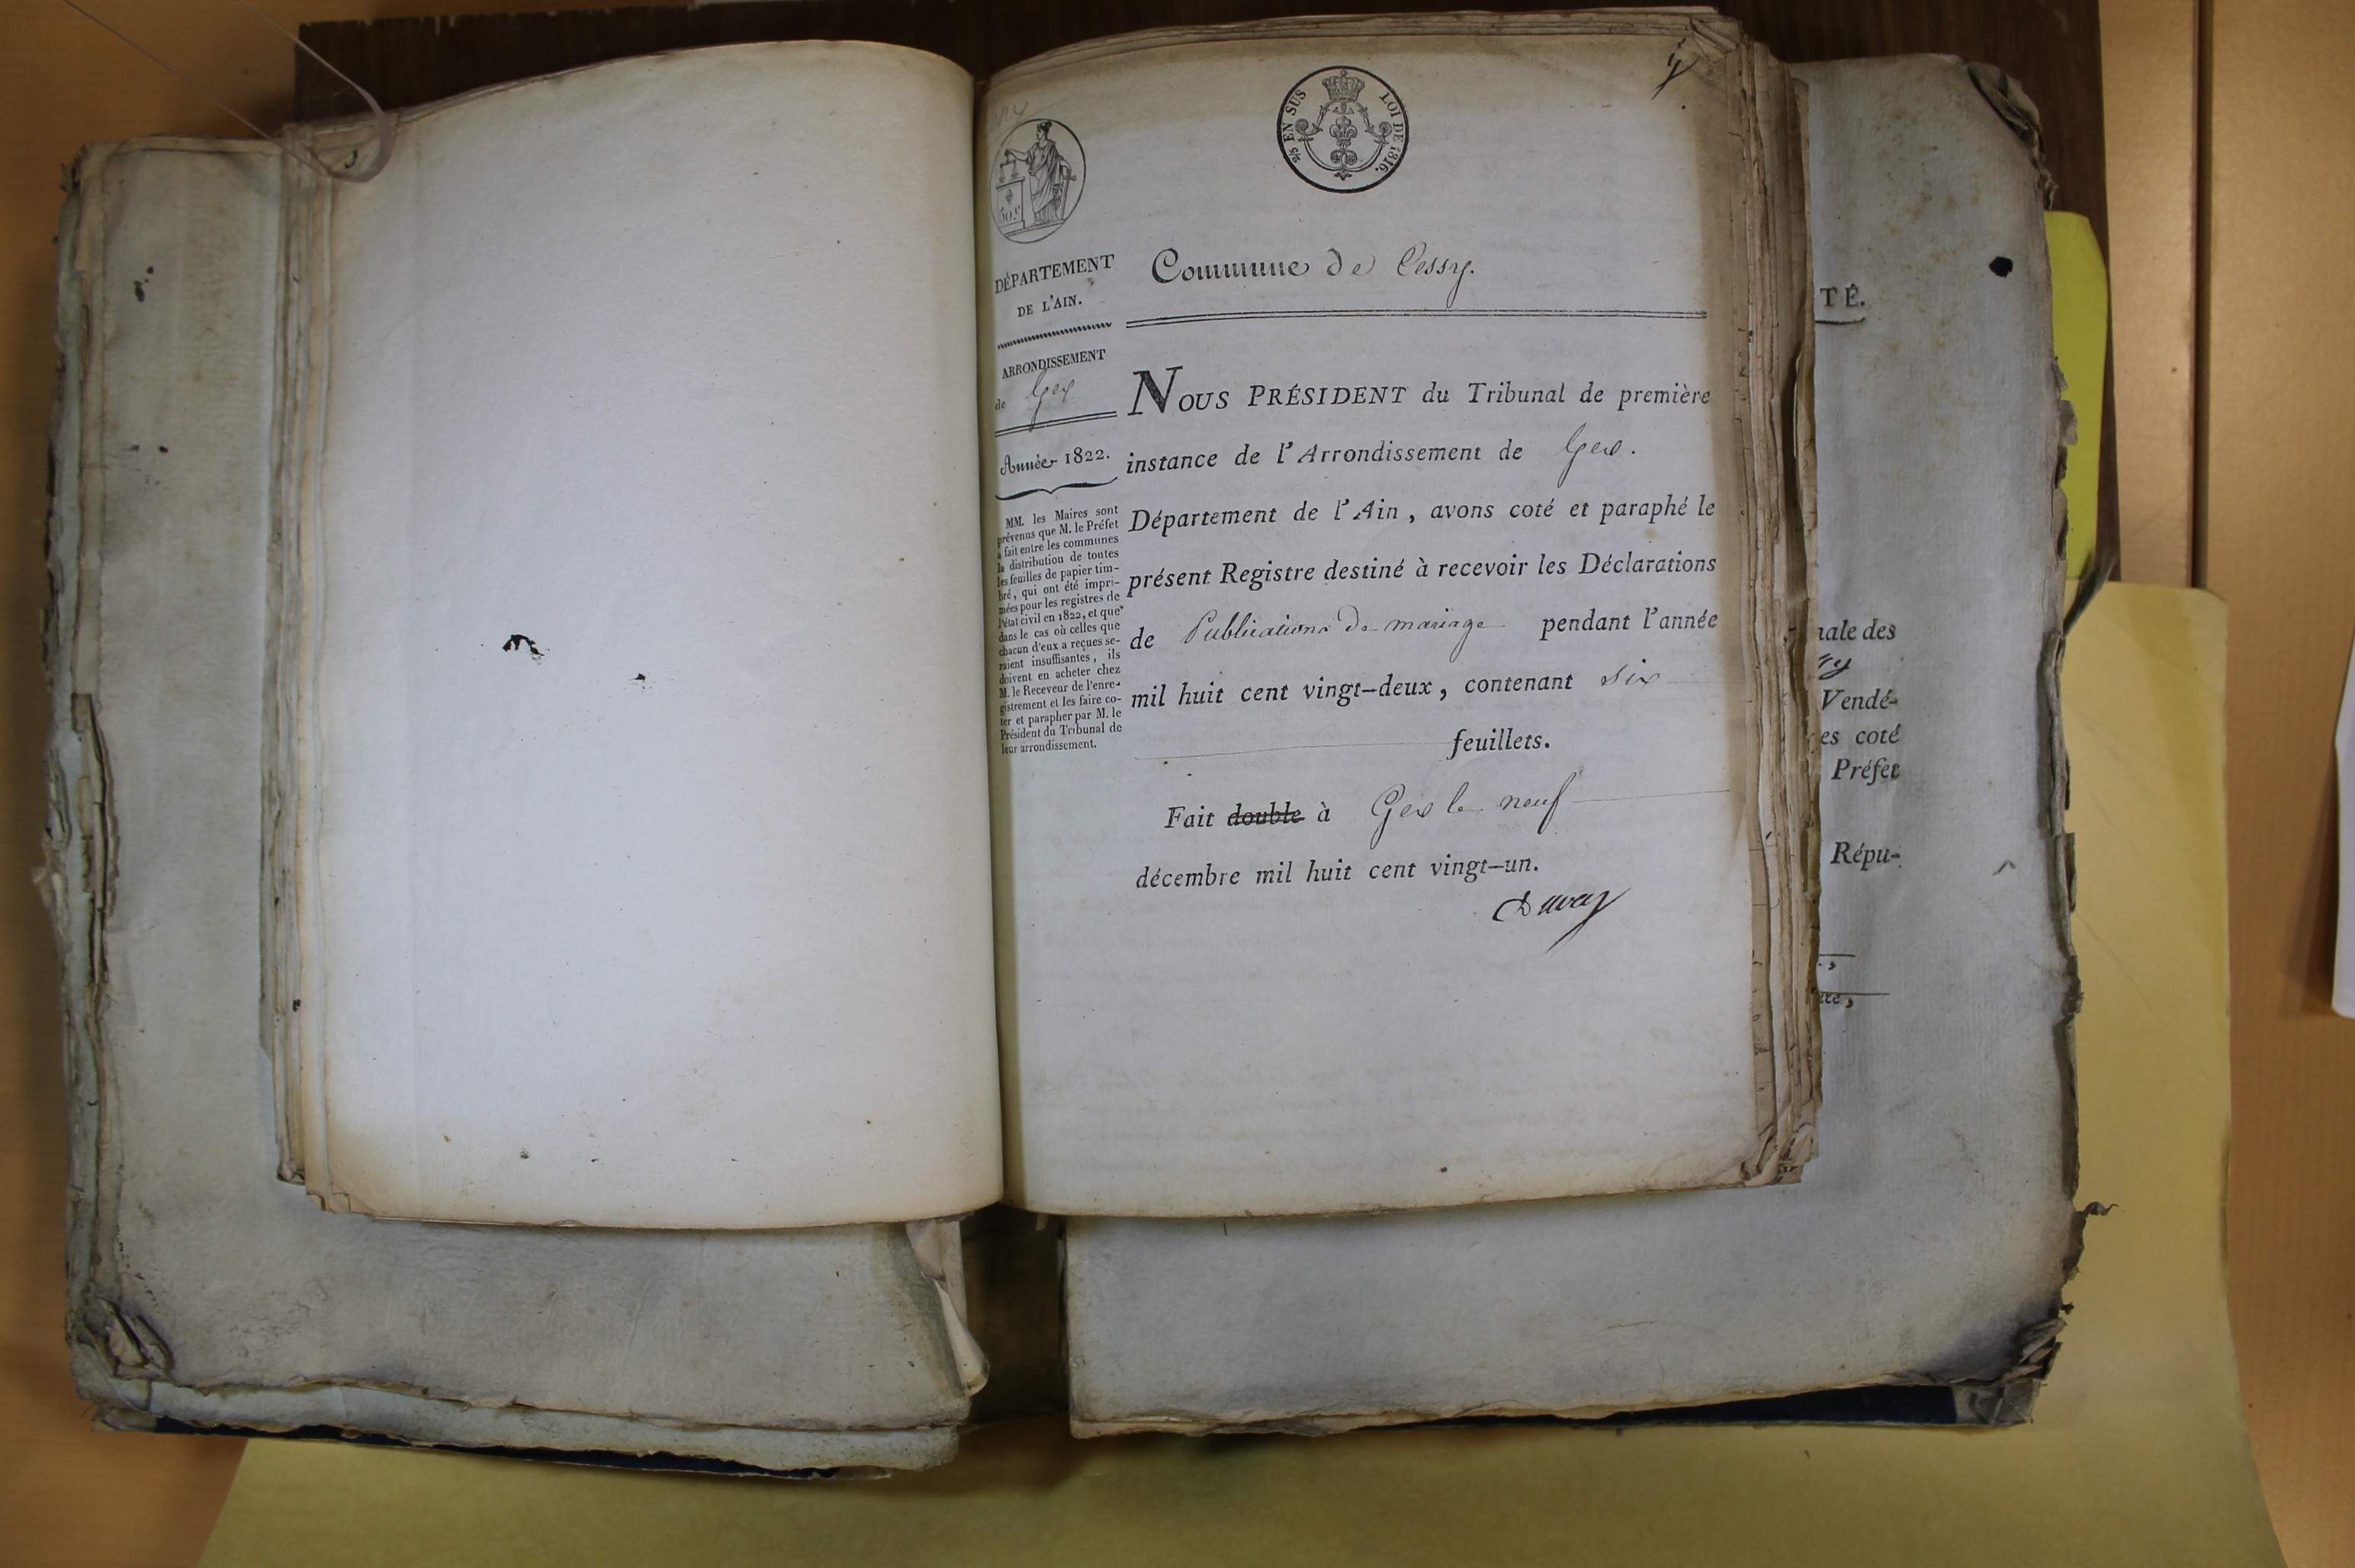 2/5 EN SUS LOI DE 1816.
50 c
DÉPARTEMENT
DE L'AIN.
ARRONDISSEMENT
de Gex
Année 1822.
MM. les Maires sont
prévenus que M. le Préfet
a fait entre les communes
la distribution de toutes
les feuilles de papier tim-
bré, qui ont été impri-
mées pour les registres de
l'état civil en 1822, et que
dans le cas où celles que
chacun d'eux a reçues se-
raient insuffisantes, ils
doivent en acheter chez
M. le Receveur de l'enre-
gistrement et les faire co-
ter et parapher par M. le
Président du Tribunal de
leur arrondissement.
Commune de Cessy.
NOUS PRÉSIDENT du Tribunal de première
instance de l'Arrondissement de Gex.
Département de l'Ain, avons coté et paraphé le
présent Registre destiné à recevoir les Déclarations
de Publications de mariage pendant l'année
mil huit cent vingt-deux, contenant six
feuillets.
Fait double à Gex le neuf
décembre mil huit cent vingt-un.
TÉ.
nale des
Vendé-
es coté
Préfet
Répu-